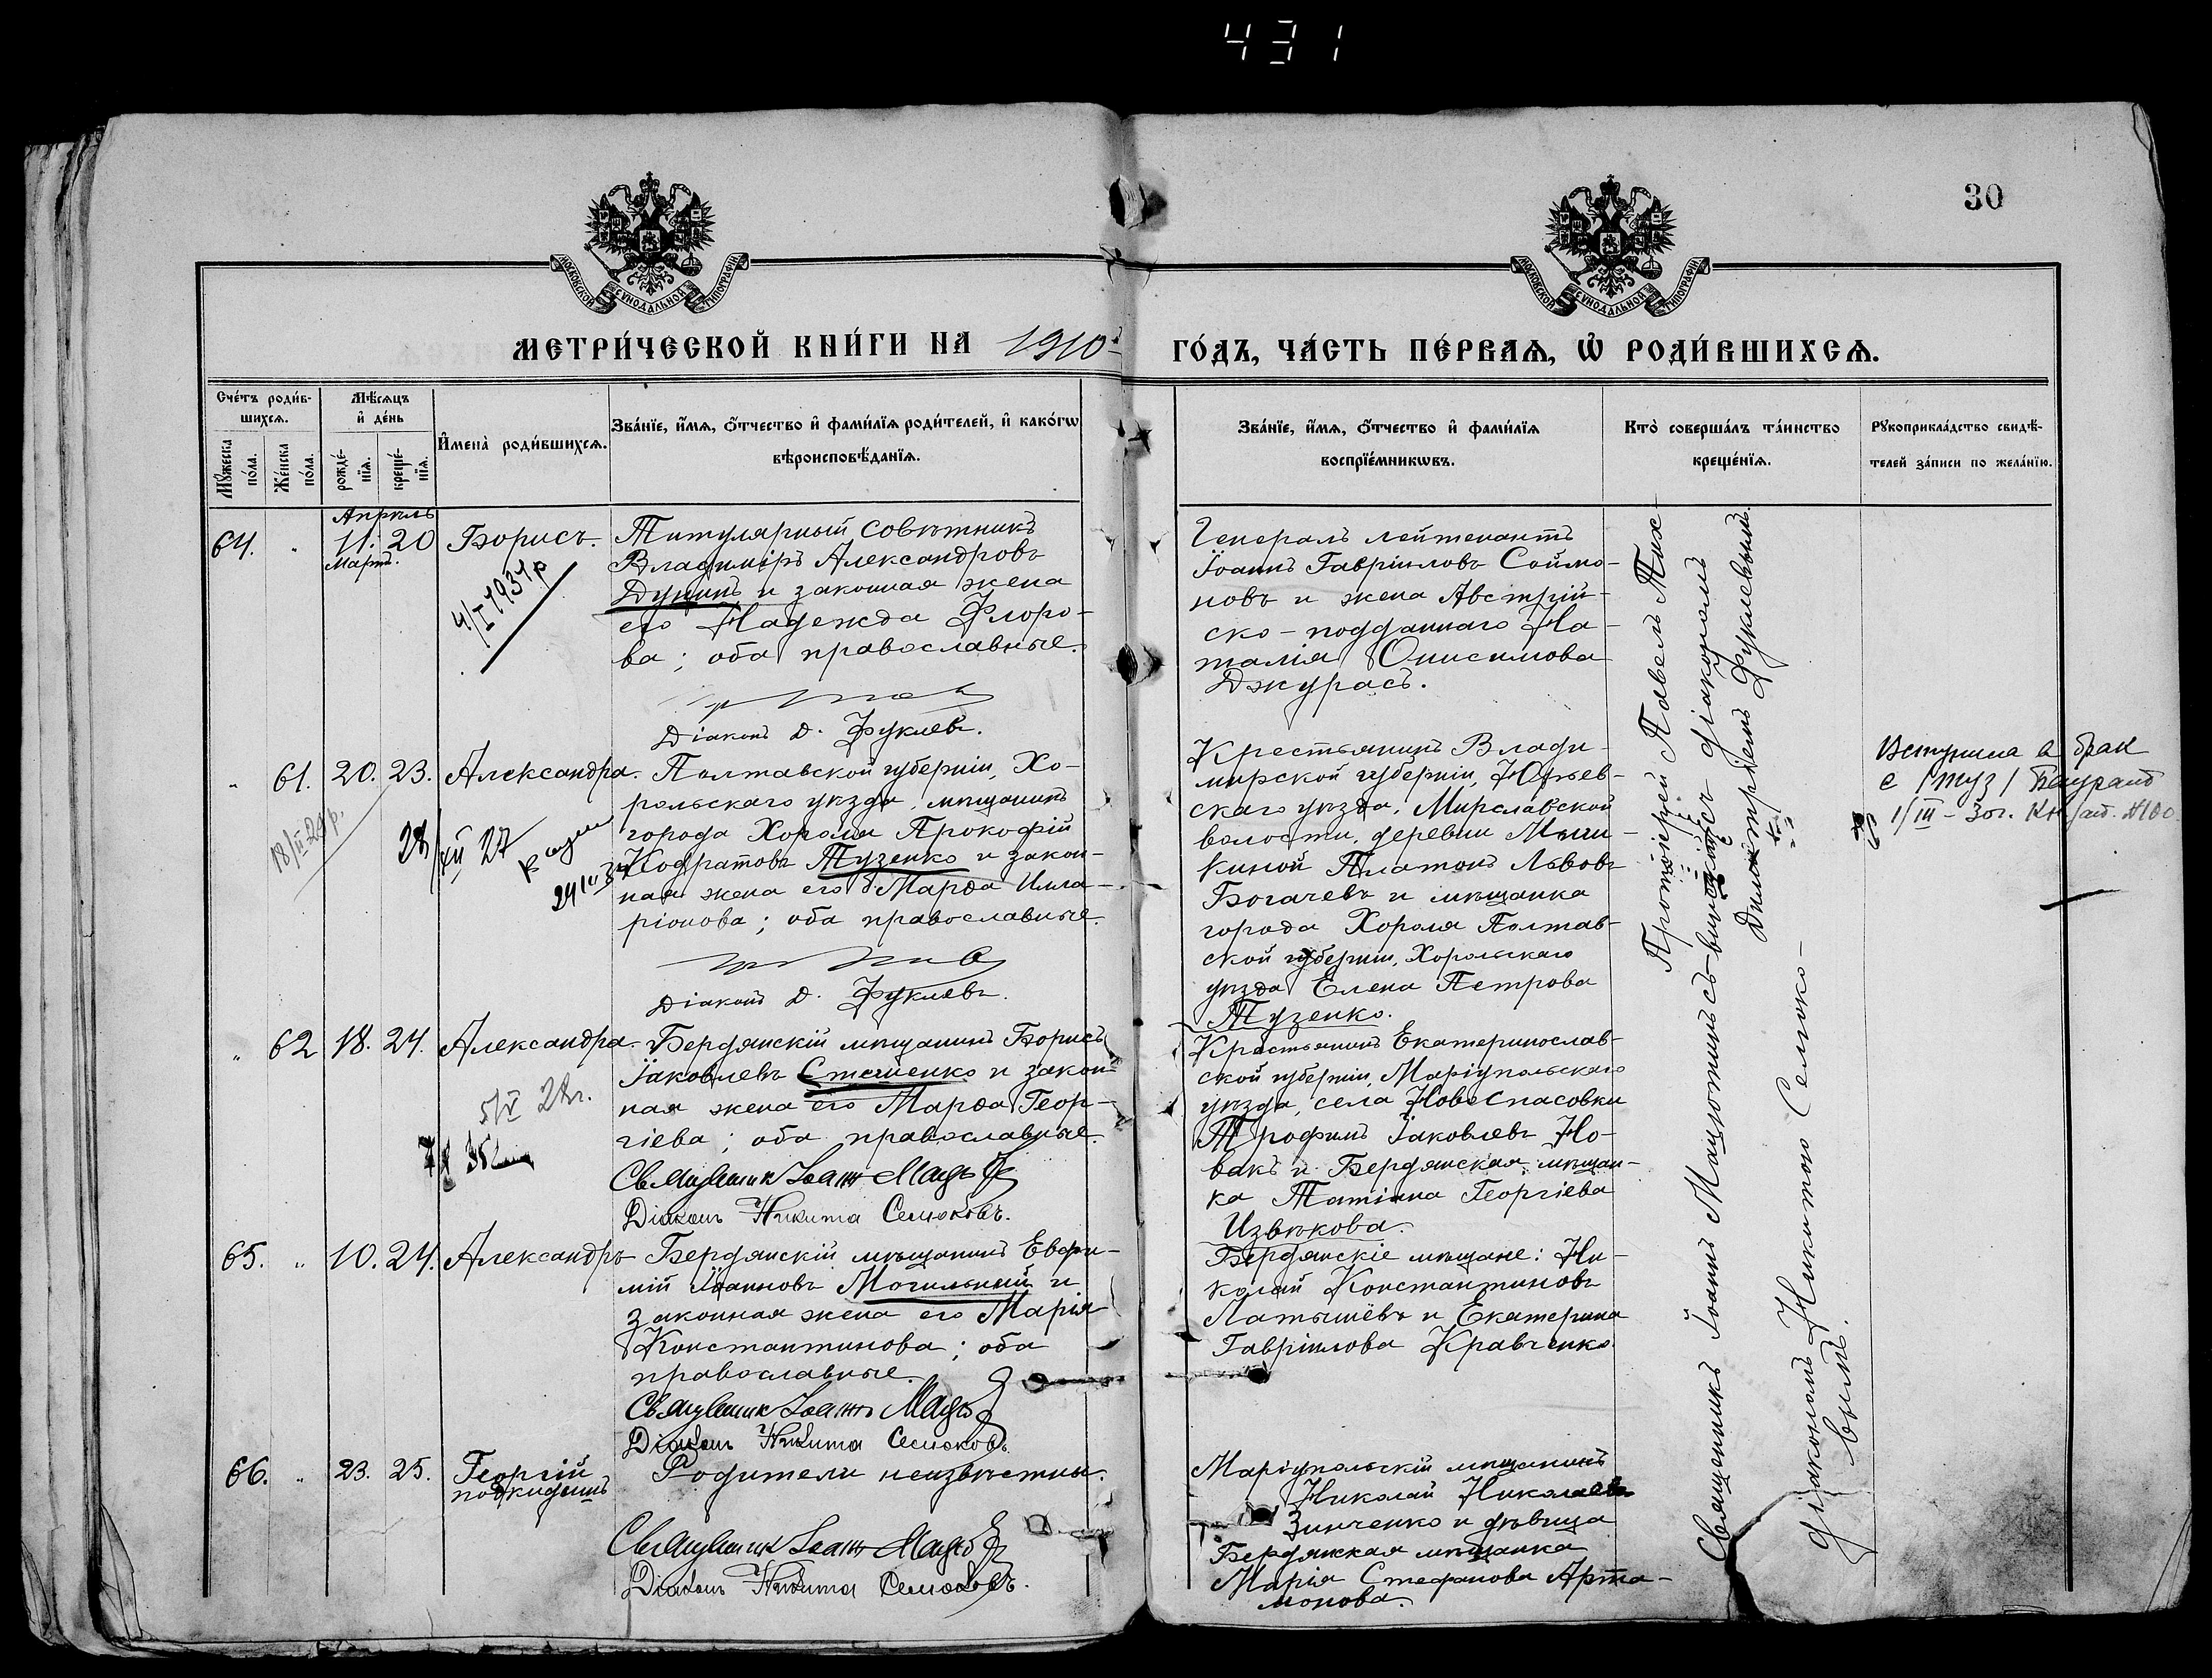 431
30
МОСКОВСКОЙ СѴНОДАЛЬНОЙ ТИПОГРАФІИ
МОСКОВСКОЙ СѴНОДАЛЬНОЙ ТИПОГРАФІИ
МЕТРИ́ЧЕСКОЙ КНИ́ГИ НА 1910й
ГО́ДЪ, ЧА́СТЬ ПЕ́РВАЯ, Ѡ РОДИ́ВШИХСЯ.
Сче́тъ роди́в-
шихся.
Мꙋжеска по́ла.
Же́нска по́ла.
Мѣ́сяцъ
и҆ де́нь
рожде́-
нїя.
креще́-
нїя.
И҆мена̀ роди́вшихся.
Зва́нїе, и҆́мя, ѻ҆́тчество и҆ фами́лїя роди́телей, и҆ како́гѡ
вѣроисповѣ́данїя.
Зва́нїе, и҆́мя, ѻ҆́тчество и҆ фами́лїя
воспрїе́мникѡвъ.
Кто̀ соверша́лъ та́инство
креще́нїя.
Рꙋкоприкла́дство свидѣ́-
телей за́писи по жела́нїю.
Апрѣль
64. " 11. 20 Борисъ.
Мартъ.
4/I 1931 р
Титулярный Совѣтникъ
Владиміръ Александровъ
Дунинъ и законная жена
его Надежда Флоро-
ва; оба православные.
Діаконъ Д. Фуклевъ.
Генералъ лейтенантъ
Іоаннъ Гавріиловъ Соймо-
новъ и жена Австрій-
ско-подданнаго На-
талія Онисимова
Джурасъ.
" 61. 20. 23. Александра.
Полтавской губерніи, Хо-
рольскаго уѣзда, мѣщанинъ
города Хорола Прокофій
Кодратовъ Тузенко и закон-
ная жена его Марѳа Илла-
ріонова; оба православные.
Діаконъ Д. Фуклевъ.
Крестьянинъ Влади-
мирской губерніи, Юрьев-
скаго уѣзда, Мирславской
волости, деревни
киной Платонъ Львовъ
Богачевъ и мѣщанка
города Хорола Полтав-
ской губерніи, Хорольскаго
уѣзда Елена Петрова
Тузенко.
Вступила в брак
с
1/III - 30г. №100
" 62 18. 24. Александра.
5/V 28г.
Бердянскій мѣщанинъ Борисъ
Іаковлевъ Стешенко и закон-
ная жена его Марѳа Геор-
гіева; оба православные.
Священникъ Іоаннъ
Діаконъ Никита Селюковъ.
Крестьянинъ Екатеринослав-
ской губерніи, Маріупольскаго
уѣзда, села Новоспасовки
Трофимъ Іаковлевъ Но-
вакъ и Бердянская мѣщан-
ка Татіана Георгіева
Извѣкова.
65. " 10. 24. Александръ
Бердянскій мѣщанинъ Евфи-
мій Іоанновъ Могильный и
законная жена его Марія
Константинова; оба
православные.
Священникъ Іоаннъ
Діаконъ Никита Селюковъ.
Бердянскіе мѣщане: Ни-
колай Константиновъ
Латышёвъ и Екатерина
Гавріилова Кравченко.
66. " 23. 25. Георгій
подкидышъ
Родители неизвѣстны.
Священникъ Іоаннъ
Діаконъ Никита Селюковъ.
Маріупольскій мѣщанинъ
Николай Николаевъ
Зинченко и дѣвица
Бердянская мѣщанка
Марія Стефанова Арта-
монова.
Протоіерей Павелъ
съ діакономъ
Димитріемъ Фуклевымъ.
Священникъ Іоаннъ
діакономъ Никитою Селюко-
вымъ.